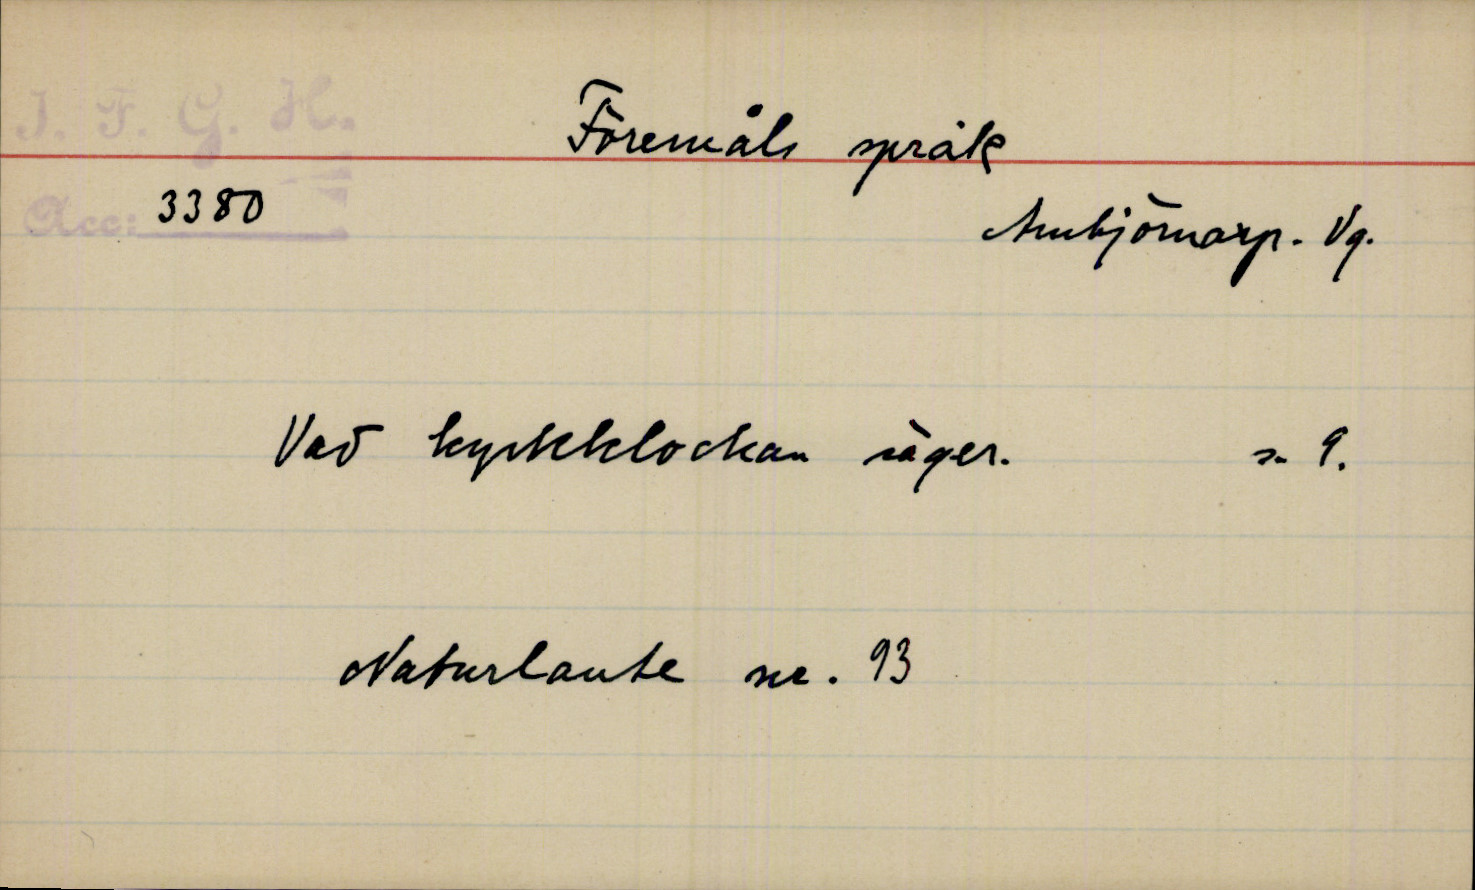 I. F. G. H.
Föremåls språk
Acc: 3380
Ambjörnarp. Vg.
Vad kyrkklockan säger. s. 9.
Naturlaute nr. 93